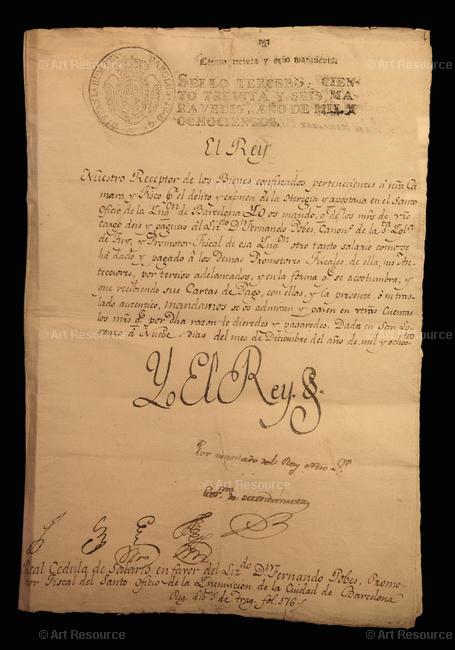 Ciento treinta y seis maravedis.
SELLO TERCERO, CIEN-
TO TREINTA Y SEIS MA-
RAVEDIS, AÑO DE MIL Y
OCHOCIENTOS.
El Rey
Nuestro Receptor de los Bienes confiscados pertenecientes á nrã Ca-
mara, y Fisco pr. el delito y crimen de la Heregia y apostasia en el Santo
Oficio de la Inqn. de Barcelona: Yo os mando, qe. de los mrs. de vrõ
cargo deis y pagueis al Lizdo. Dn. Fernando Pobes, Canono. de la Sta. Igla.
de y Promotor Fiscal de esa Inqn. otro tanto salario como se
há dado y pagado á los Demas Promotores Fiscales, de ella, sus An-
tecesores, por tercios adelantados, y en la forma qe. se acostumbra; y
que recibiendo sus Cartas de Pago, con ellas, y la presente, ó su tras-
lado autentico, mandamos se os admitan y pasen en vrãs Cuentas
los mrs. qe. por dha razon le dieredes y pagaredes. Dada en San Lo-
renzo à Nuebe dias del mes de Diciembre del año de mil y ochotos.
Yo El Rey.
Por mandado del Rey nrõ Sor.
Real Cedula de Salario, en favor del Lizdo. Dn. Fernando Pobes, Promo-
tor Fiscal del Santo Oficio de la Inquisicion de la Ciudad de Barcelona
Reg. de Arag. fol. 176
© Art Resource
© Art Resource
© Art Resource
© Art Resource
© Art Resource
© Art Resource
© Art Resource
© Art Resource
© Art Resource
© Art Resource